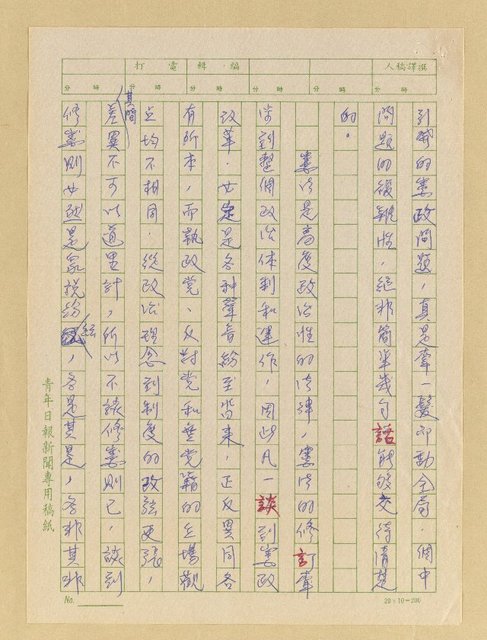 撰譯稿人
編輯
電打
時 分 時 分 時 分 時 分
到我的憲政問題,真是牽一髮而動全局,個中
問題的複雜性,絕非簡單幾句話能夠交待清楚
的。
憲法是高度政治性的法律,憲法的修訂牽
涉到整個政治体制和運作,因此凡一談到憲政
改革,必定是各種聲音紛至沓來,正反異同各
有所本,而執政党、反對党和無党籍的立場觀
点均不相同,從政治理念到制度的改弦更張,
其間差異不可以道里計,所以不談修憲則已,談到
修憲則必然是眾說紛紜,各是其是,各非其非
青年日報新聞專用稿紙
No.
20×10=200